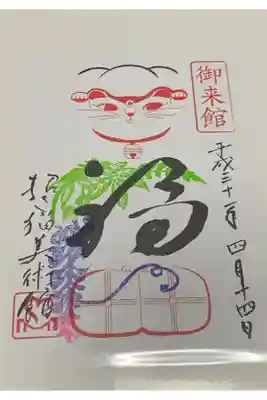 御来館
平成三十年 四月十四日
福
招き猫美術館